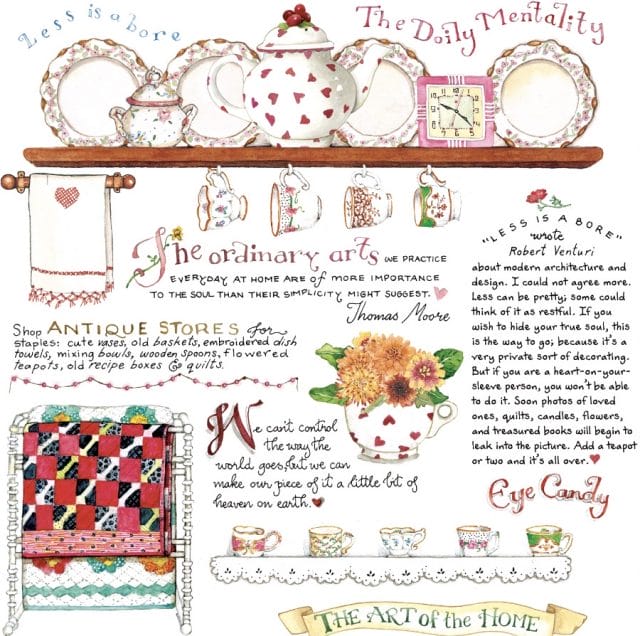 Less is a bore
The Doily Mentality
The ordinary arts WE PRACTICE
EVERYDAY AT HOME ARE of MORE IMPORTANCE
TO THE SOUL THAN THEIR SIMPLICITY MIGHT SUGGEST.
Thomas Moore
Shop ANTIQUE STORES for
staples: cute vases, old baskets, embroidered dish
towels, mixing bowls, wooden spoons, flowered
teapots, old recipe boxes & quilts.
We can't control
the way the
world goes, but we can
make our piece of it a little bit of
heaven on earth.
"LESS IS A BORE"
wrote
Robert Venturi
about modern architecture and
design. I could not agree more.
Less can be pretty; some could
think of it as restful. If you
wish to hide your true soul, this
is the way to go; because it's a
very private sort of decorating.
But if you are a heart-on-your-
sleeve person, you won't be able
to do it. Soon photos of loved
ones, quilts, candles, flowers,
and treasured books will begin to
leak into the picture. Add a teapot
or two and it's all over.
Eye Candy
THE ART of the HOME